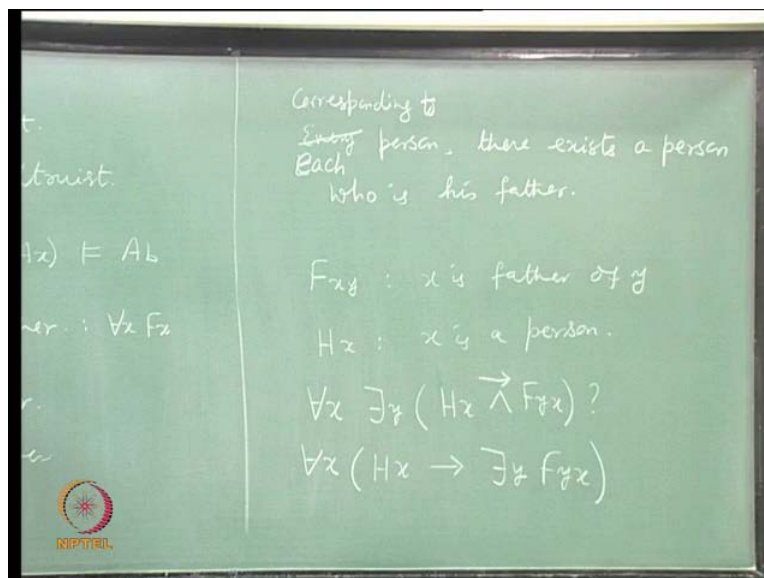 t.
ltruist.
Ax) ⊨ Ab
her : ∀x Fx
r.
Corresponding to
Every person, there exists a person
Each
who is his father.
Fxy : x is father of y
Hx : x is a person.
∀x ∃y ( Hx →∧ Fyx) ?
∀x ( Hx → ∃y Fyx )
NPTEL